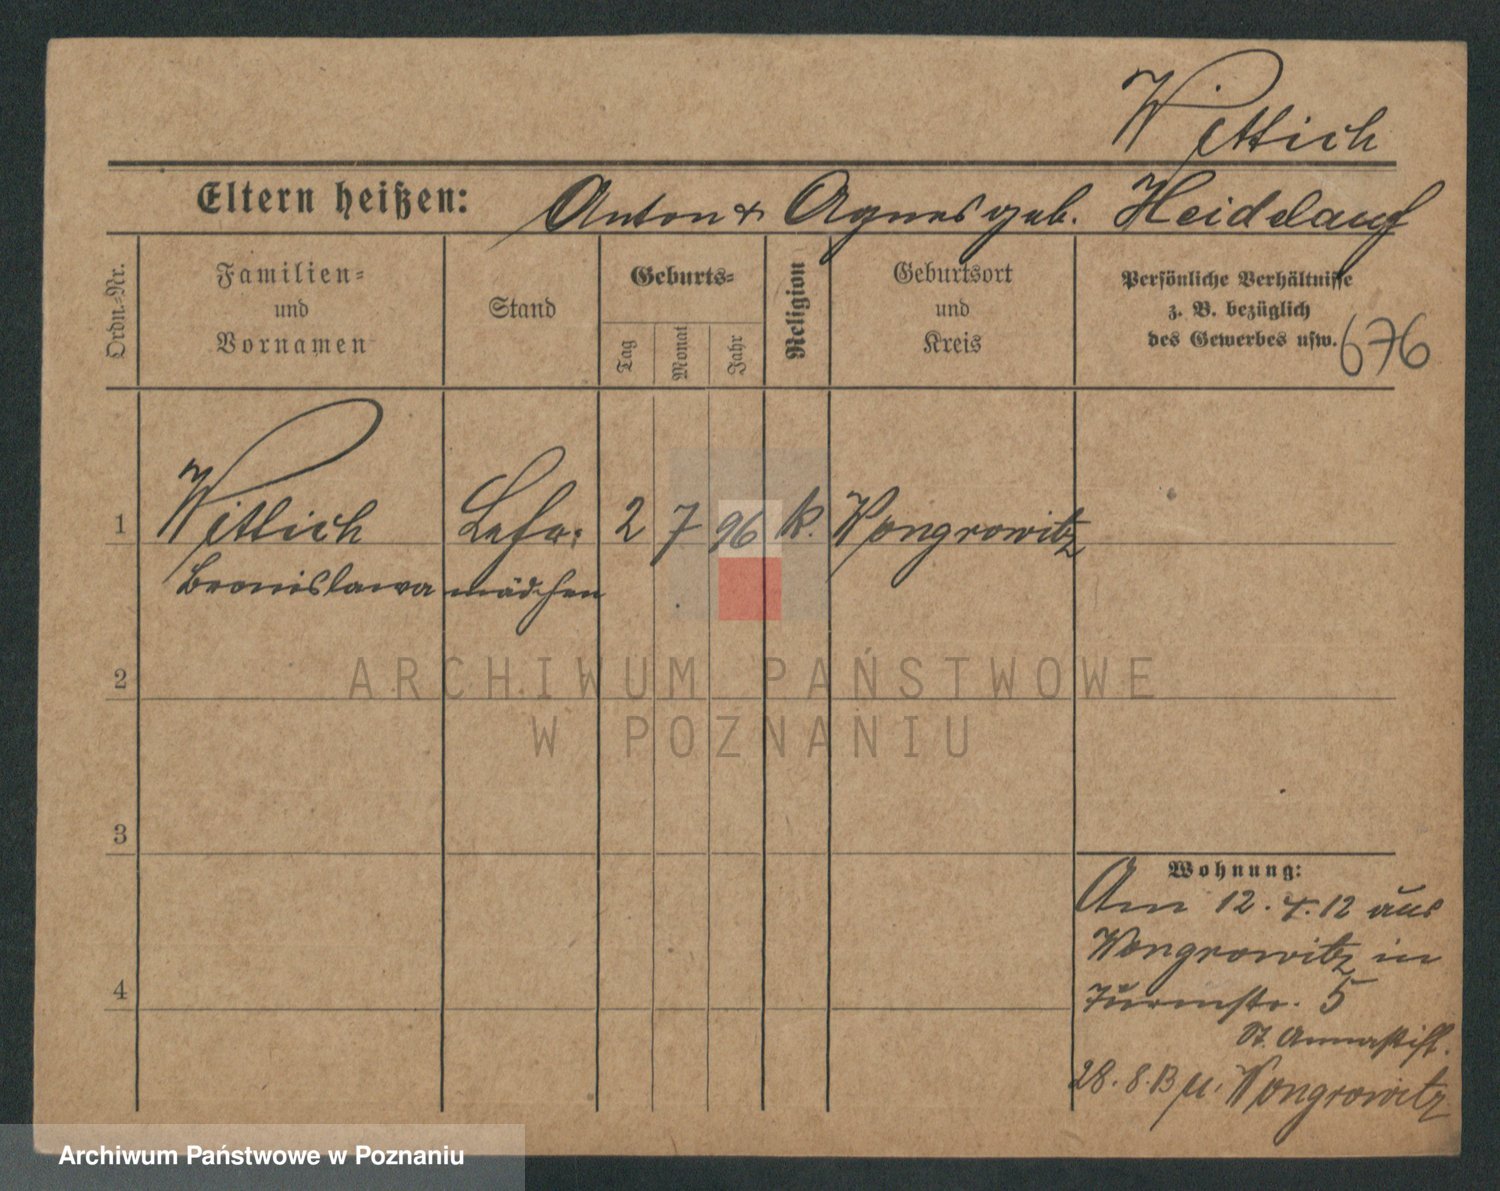 Wittich
Eltern heißen: Anton & Agnes geb. Heidelauf
Ordn.-Nr.
Familien-
und
Vornamen
Stand
Geburts-
Tag
Monat
Jahr
Religion
Geburtsort
und
Kreis
Persönliche Verhältnisse
z. B. bezüglich
des Gewerbes usw.
676
1 Wittlich Lehr- 2 7 96 k. Wongrowitz
Bronislawa mädchen
2
3
4
Wohnung:
Am 12.4.12 aus
Wongrowitz in
Turmstr. 5
St. Annastift.
28.8.13 n. Wongrowitz
ARCHIWUM PAŃSTWOWE
W POZNANIU
Archiwum Państwowe w Poznaniu